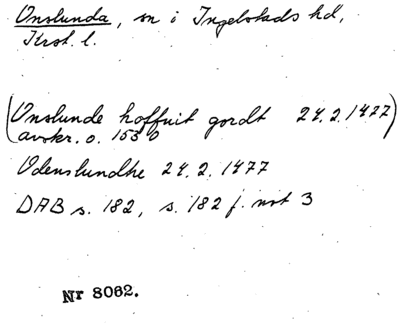 Onslunda, sn i Ingelstads hd,
Krst. l.
(Onslunde hoffuit gordt 24.2.1477)
avskr. o. 1530
Odenslundhe 24.2.1477
DAB s. 182, s. 182 f. not 3
Nr 8062.